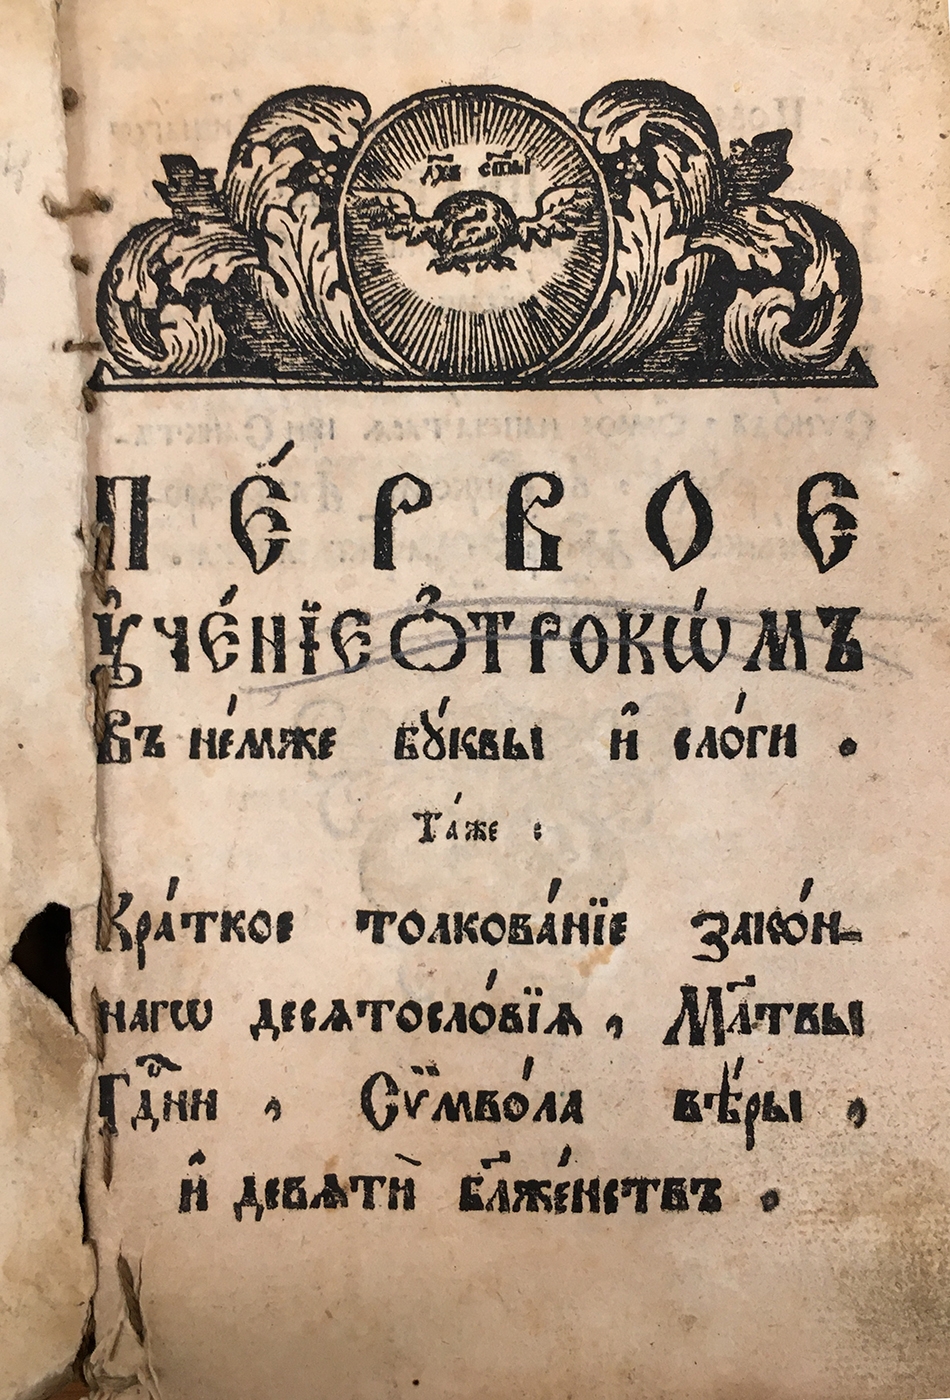 дх҃ъ ст҃ы
ПЕ́РВОЕ
ᲂу҆че́нїе ѻ҆трокѡ́мъ
въ не́мже бꙋ́квы и҆ сло́ги .
Та́же :
Кра́ткое толкова́нїе зако́н-
нагѡ десѧтосло́вїѧ , Мл҃твы
Гдⷭ҇ни , Сѷмво́ла вѣ́ры ,
и҆ девѧтѝ бл҃же́нствъ .